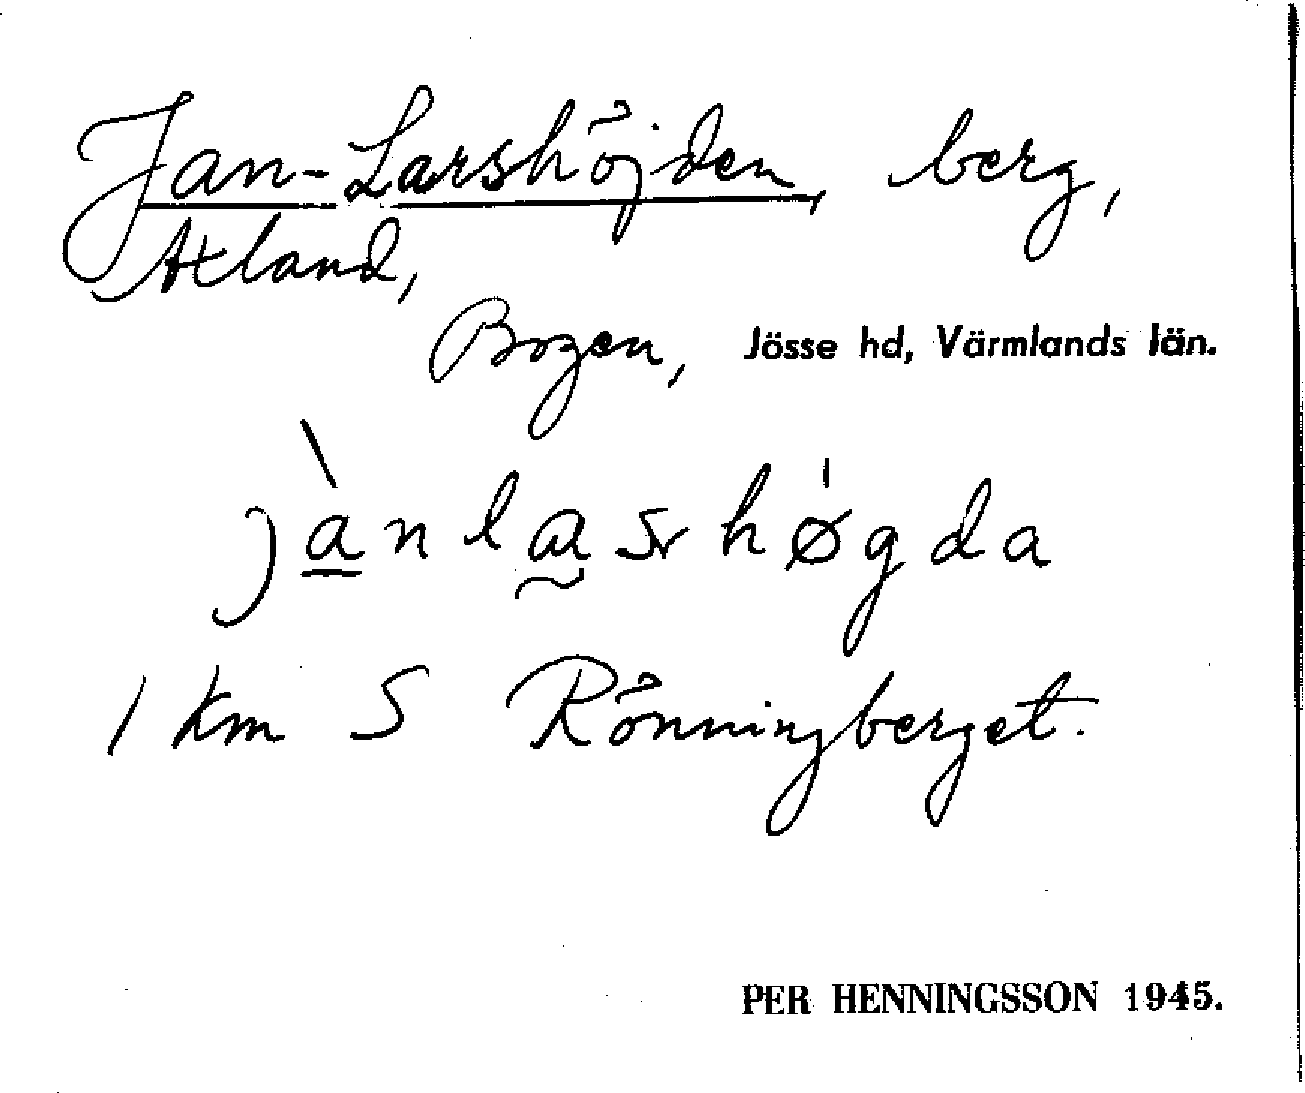 Jan-Larshöjden, berg,
Axland,
Bogen, Jösse hd, Värmlands län.
jànlashøgda
1 km S Rönningberget.
PER HENNINGSSON 1945.